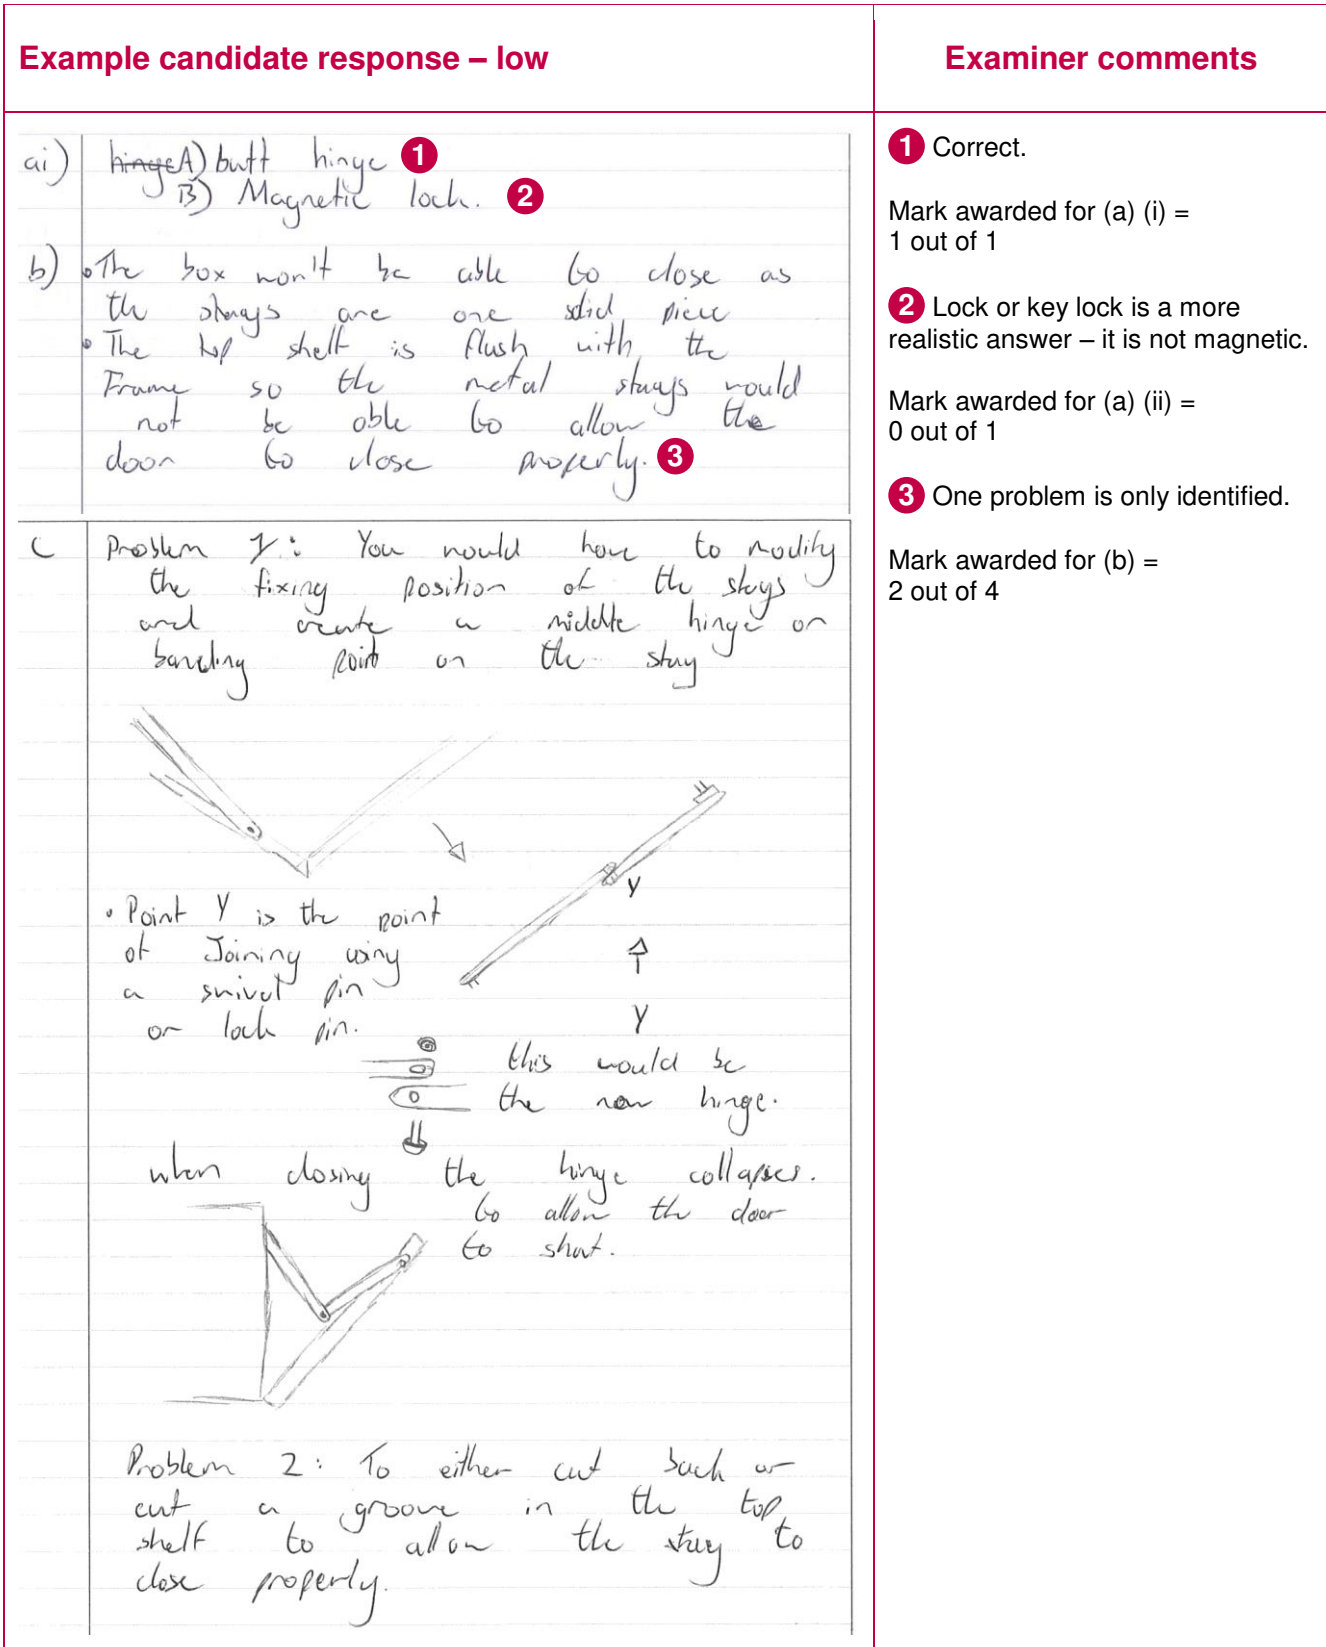 Example candidate response – low
Examiner comments
ai) hingeA) butt hinge 1
B) Magnetic lock. 2
b) • The box won't be able to close as
the stays are one solid piece
• The top shelf is flush with the
Frame so the metal stays would
not be able to allow the
door to close properly. 3
C Problem 1: You would have to modify
the fixing position of the stays
and create a middle hinge or
banding point on the stay
Y
• Point Y is the point
of Joining using
a swivel pin
or lock pin.
Y
this would be
the new hinge.
when closing the hinge collapses.
to allow the door
to shut.
Problem 2: To either cut back or
cut a groove in the top
shelf to allow the stay to
close properly.
1 Correct.
Mark awarded for (a) (i) =
1 out of 1
2 Lock or key lock is a more
realistic answer – it is not magnetic.
Mark awarded for (a) (ii) =
0 out of 1
3 One problem is only identified.
Mark awarded for (b) =
2 out of 4